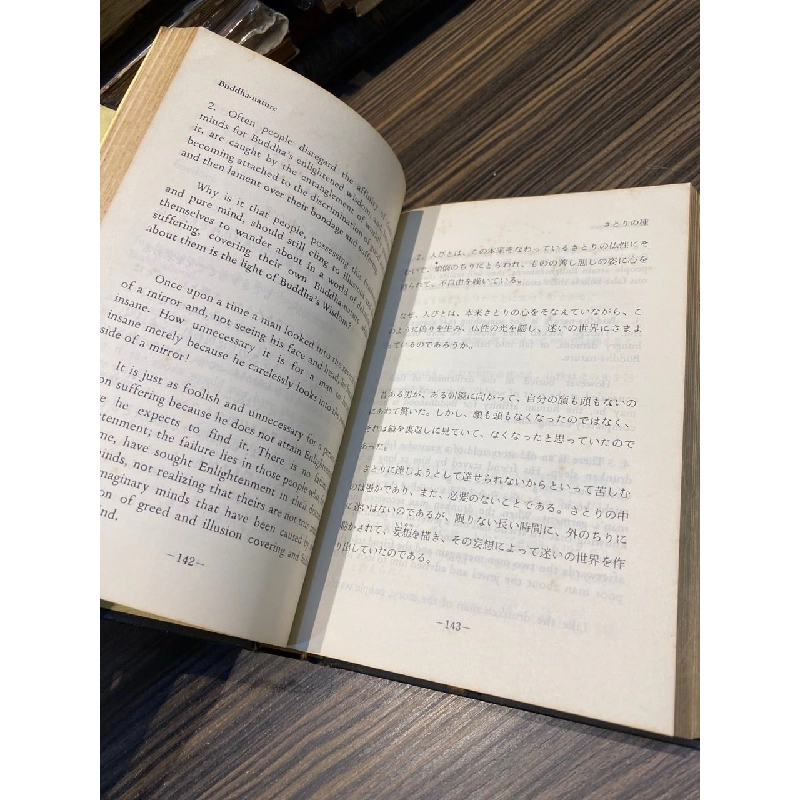 Buddha-nature
2. Often people disregard the affinity of
minds for Buddha's enlightened wisdom, and,
it, are caught by the entanglement of
becoming attached to the discrimination of
and then lament over their bondage and suffering.
Why is it that people, possessing this
and pure mind, should still cling to illusions and
themselves to wander about in a world of
suffering, covering their own Buddha-nature
about them is the light of Buddha's Wisdom?
Once upon a time a man looked into the
of a mirror and, not seeing his face and head,
insane. How unnecessary it is for a man to
insane merely because he carelessly looks into the
side of a mirror!
It is just as foolish and unnecessary for a
on suffering because he does not attain
he expects to find it. There is no
tenment; the failure lies in those people who,
me, have sought Enlightenment in their
inds, not realizing that theirs are not true
maginary minds that have been caused by
on of greed and illusion covering and
nd.
–142–
さとりの種
2. 人びとは、この本来そなわっているさとりの仏性にそ
むいて、煩悩のちりにとらわれ、ものの善し悪しの姿に心を
縛られて、不自由を嘆いている。
なぜ、人びとは、本来さとりの心をそなえていながら、こ
のように偽りを生み、仏性の光を隠し、迷いの世界にさまよ
っているのであろうか。
昔ある男が、ある朝鏡に向かって、自分の顔も頭もないの
にあわて驚いた。しかし、顔も頭もなくなったのではなく、
それは鏡を裏返しに見ていて、なくなったと思っていたので
あった。
さとりに達しようとして達せられないからといって苦しむ
のは愚かであり、また、必要のないことである。さとりの中
に迷いはないのであるが、限りない長い時間に、外のちりに
動かされて、妄想を描き、その妄想によって迷いの世界を作
り出していたのである。
–143–